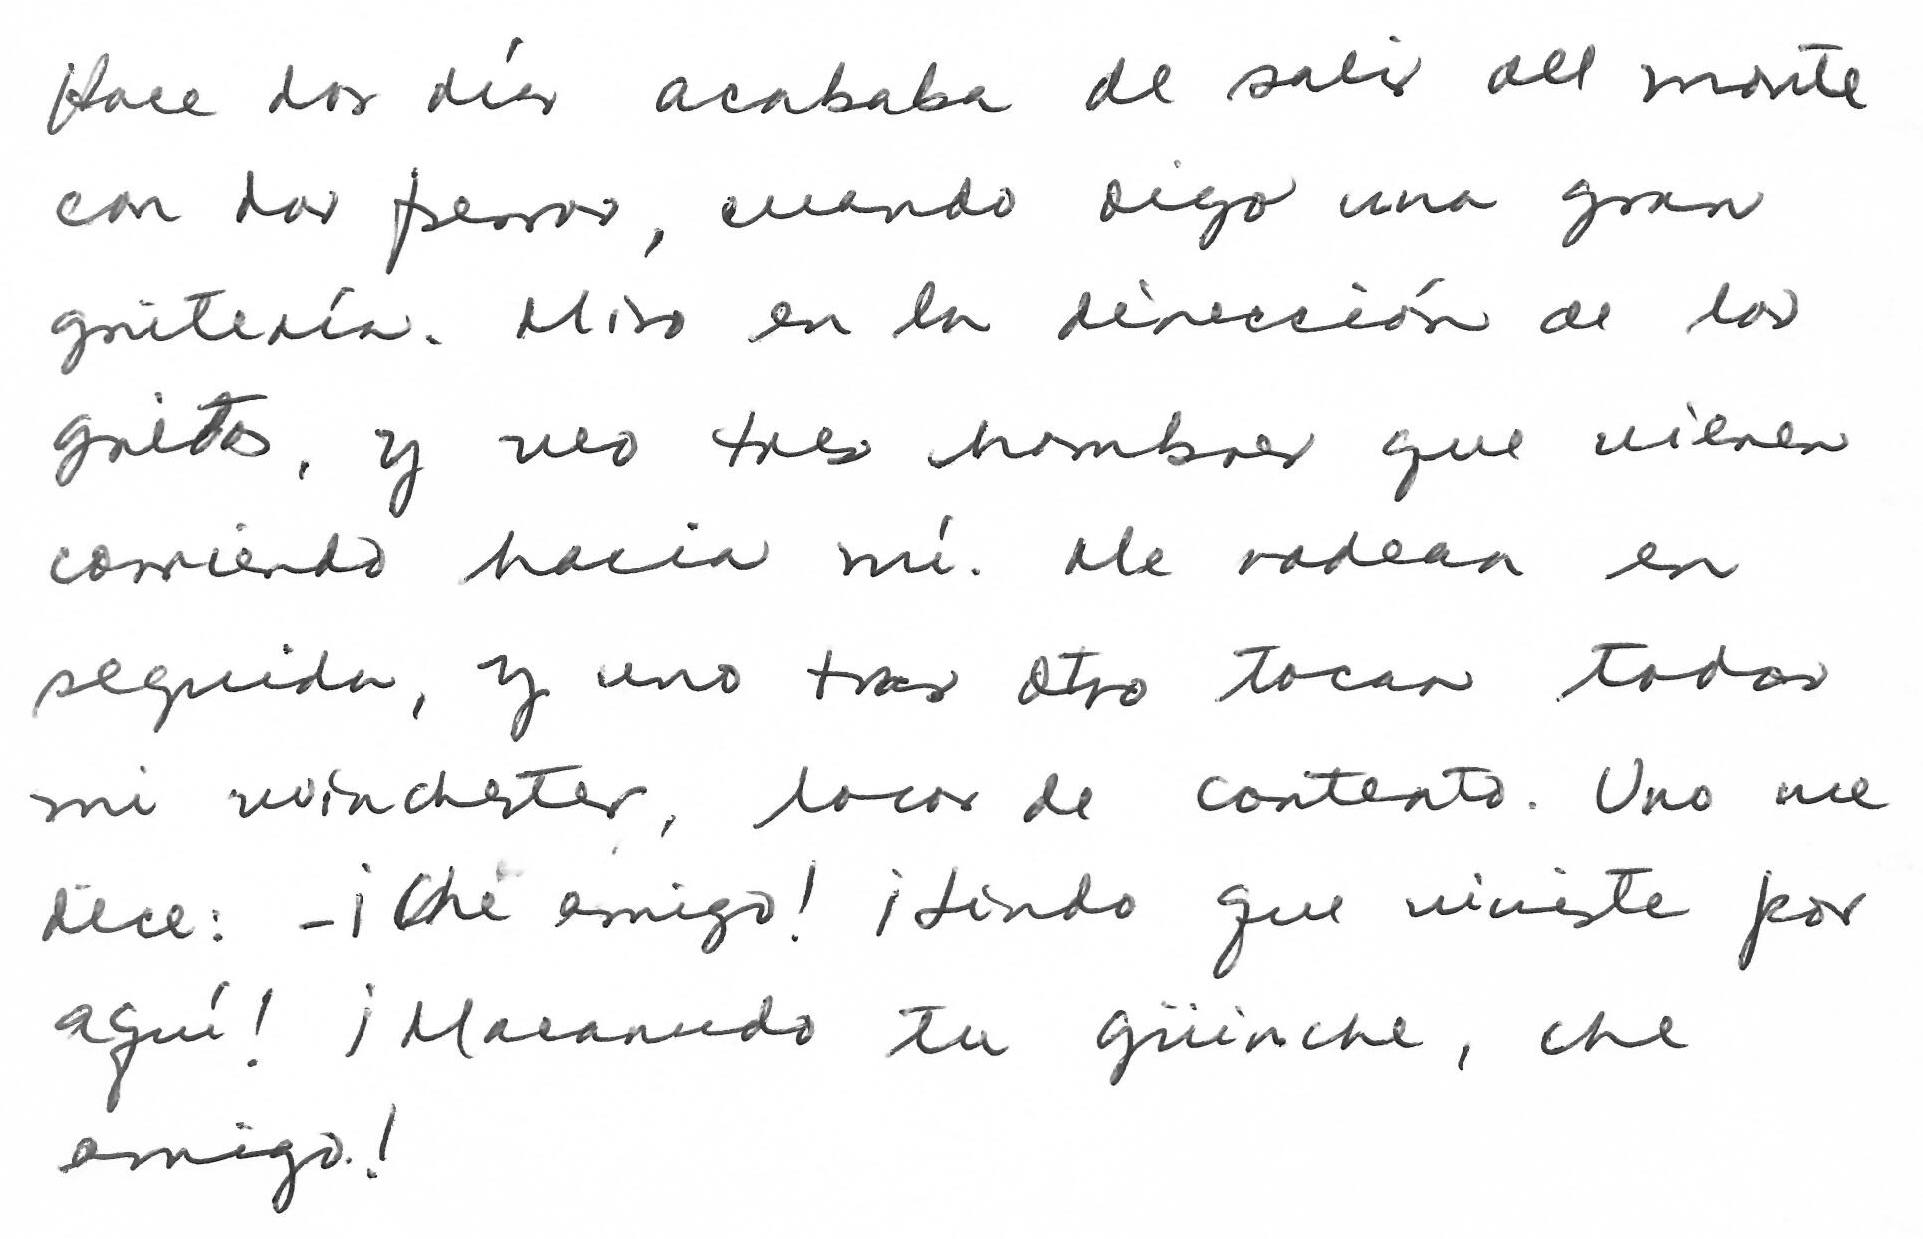 Hace dos días acababa de salir del monte
con dos perros, cuando oigo una gran
gritería. Miro en la dirección de los
gritos, y veo tres hombres que vienen
corriendo hacia mí. Me rodean en
seguida, y uno tras otro tocan todos
mi winchester, locos de contento. Uno me
dice: -¡Che amigo! ¡Lindo que viniste por
aquí! ¡Macanudo tu güinche, che
amigo!